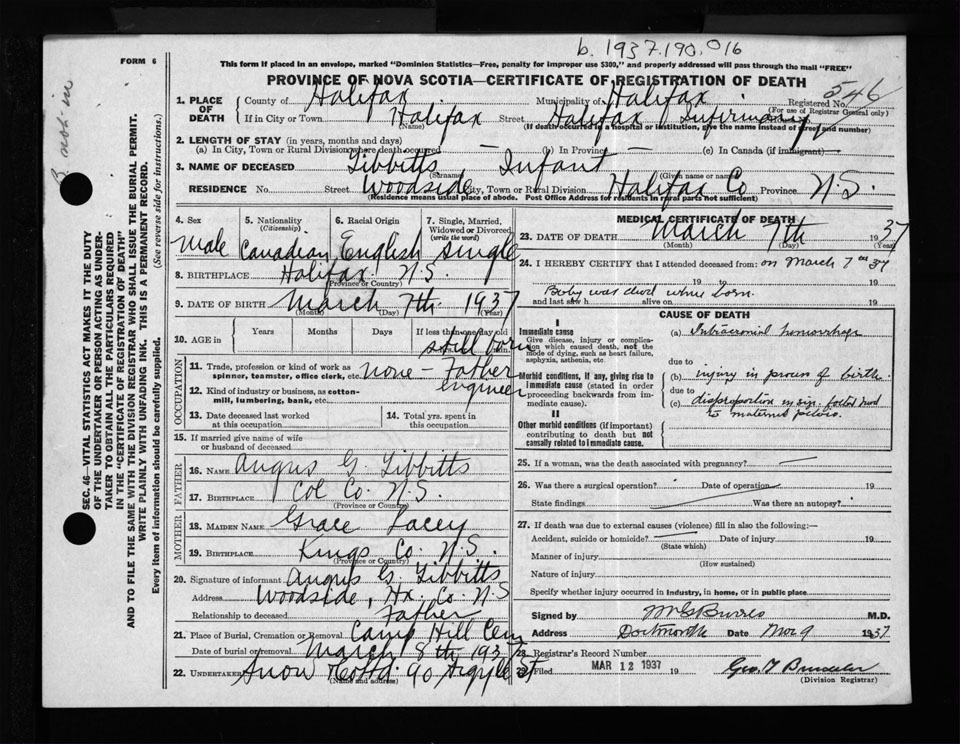 b. 1937.190.016
FORM 6
This form if placed in an envelope, marked "Dominion Statistics—Free, penalty for improper use $300," and properly addressed will pass through the mail "FREE"
PROVINCE OF NOVA SCOTIA—CERTIFICATE OF REGISTRATION OF DEATH
546
1. PLACE OF DEATH County of Halifax Municipality of Halifax Registered No.
(For use of Registrar General only)
If in City or Town Halifax Street Halifax Infirmary
(Name) (If death occurred in a hospital or institution, give the name instead of street and number)
2. LENGTH OF STAY (in years, months and days)
(a) In City, Town or Rural Division where death occurred (b) In Province (c) In Canada (if immigrant)
3. NAME OF DECEASED Tibbitts — Infant —
(Surname) (Given name or names)
RESIDENCE No. Street Woodside City, Town or Rural Division Halifax Co Province N.S.
(Residence means usual place of abode. Post Office Address for residents in rural parts not sufficient)
4. Sex 5. Nationality 6. Racial Origin 7. Single, Married, Widowed or Divorced
(Citizenship) (write the word)
Male Canadian English Single
8. BIRTHPLACE Halifax N.S.
(Province or Country)
9. DATE OF BIRTH March 7th 1937
(Month) (Day) (Year)
10. AGE in Years Months Days If less than one day old
still born
11. Trade, profession or kind of work as spinner, teamster, office clerk, etc. none - Father
engineer
12. Kind of industry or business, as cotton-mill, lumbering, bank, etc.
OCCUPATION
13. Date deceased last worked at this occupation 14. Total yrs. spent in this occupation
15. If married give name of wife or husband of deceased
FATHER
16. NAME Angus G. Tibbitts
17. BIRTHPLACE Col Co. N.S.
(Province or Country)
MOTHER
18. MAIDEN NAME Grace Lacey
19. BIRTHPLACE Kings Co. N.S.
(Province or Country)
20. Signature of informant Angus G. Tibbitts
Address Woodside, Hx. Co. N.S
Relationship to deceased Father
21. Place of Burial, Cremation or Removal Camp Hill Cem
Date of burial or removal March 8th 1937
22. UNDERTAKER Snow & Co Ltd. 90 Argyle St
(Name and address)
MEDICAL CERTIFICATE OF DEATH
23. DATE OF DEATH March 7th 1937
(Month) (Day) (Year)
24. I HEREBY CERTIFY that I attended deceased from: on March 7th 37
19 19
Baby was dead when born.
and last saw h alive on 19
CAUSE OF DEATH
I
Immediate cause
Give disease, injury or complication which caused death, not the mode of dying, such as heart failure, asphyxia, asthenia, etc.
(a) Intracranial hemorrhage
due to
Morbid conditions, if any, giving rise to immediate cause (stated in order proceeding backwards from immediate cause).
(b) injury in process of birth.
due to
(c) disproportion in size foetal head
to maternal pelvis.
II
Other morbid conditions (if important) contributing to death but not causally related to immediate cause.
25. If a woman, was the death associated with pregnancy?
26. Was there a surgical operation? Date of operation 19
State findings Was there an autopsy?
27. If death was due to external causes (violence) fill in also the following:—
Accident, suicide or homicide? Date of injury 19
(State which)
Manner of injury
(How sustained)
Nature of injury
Specify whether injury occurred in industry, in home, or in public place
Signed by M.D.
Address Dartmouth Date Mar 9 1937
28. Registrar's Record Number
29. Filed MAR 12 1937 19
(Division Registrar)
SEC. 46—VITAL STATISTICS ACT MAKES IT THE DUTY
OF THE UNDERTAKER OR PERSON ACTING AS UNDER-
TAKER TO OBTAIN ALL THE PARTICULARS REQUIRED
IN THE "CERTIFICATE OF REGISTRATION OF DEATH"
AND TO FILE THE SAME WITH THE DIVISION REGISTRAR WHO SHALL ISSUE THE BURIAL PERMIT.
WRITE PLAINLY WITH UNFADING INK. THIS IS A PERMANENT RECORD.
Every item of information should be carefully supplied. (See reverse side for instructions.)